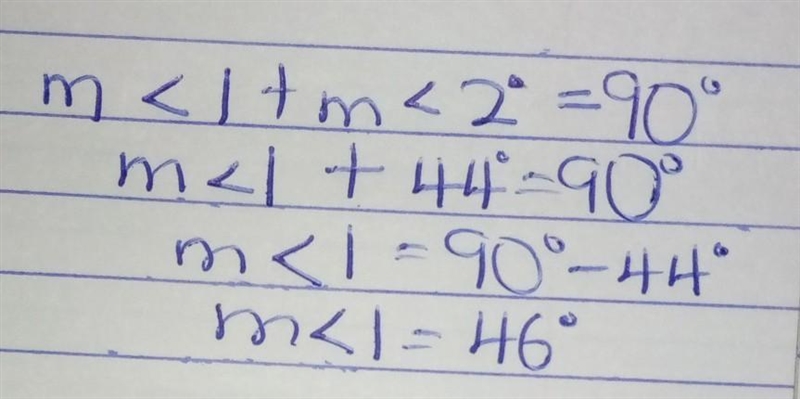 m < 1 + m < 2° = 90°
m < 1 + 44° = 90°
m < 1 = 90° - 44°
m < 1 = 46°